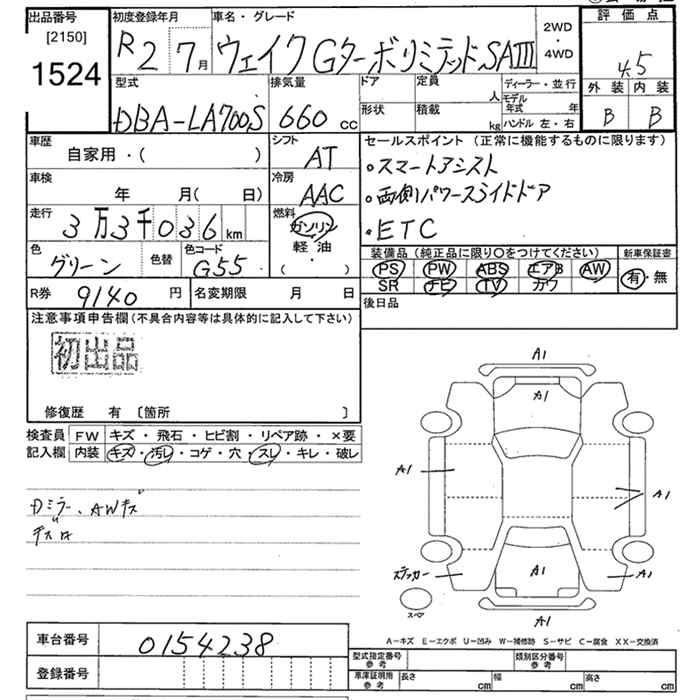 出品番号
[2150]
1524
初度登録年月
R2 7月
車名・グレード
ウェイク Gターボリミテッド SAIII
2WD
・
4WD
評価点
4.5
外装 内装
B B
型式
DBA-LA700S
排気量
660 cc
ドア
定員
人
形状
積載
kg
ディーラー・並行
モデル年式 年
ハンドル 左・右
車歴
自家用・( )
シフト
AT
セールスポイント (正常に機能するものに限ります)
・スマートアシスト
・両側パワースライドドア
・ETC
車検
年 月( 日)
冷房
AAC
走行
3万3千036 km
燃料
ガソリン
軽油
( ・ )
色
グリーン
色替
色コード
G55
装備品 (純正品に限り○をつけてください)
PS PW ABS エアB AW
SR ナビ TV カワ
新車保証書
有・無
R券 9140 円
名変期限 月 日
後日品
注意事項申告欄 (不具合内容等は具体的に記入して下さい)
初出品
修復歴 有 〔箇所 〕
検査員
記入欄
FW キズ・飛石・ヒビ割・リペア跡・×要
内装 キズ・汚レ・コゲ・穴・スレ・キレ・破レ
Dミラー、AWキズ
A1
A1
A1
A1
ステッカー
A1
A1
A1
スペア
A-キズ E-エクボ U-凹み W-補修跡 S-サビ C-腐食 XX-交換済
車台番号 0154238
登録番号
型式指定番号
参考
類別区分番号
参考
車庫証明用
参考
長さ cm 幅 cm 高さ cm